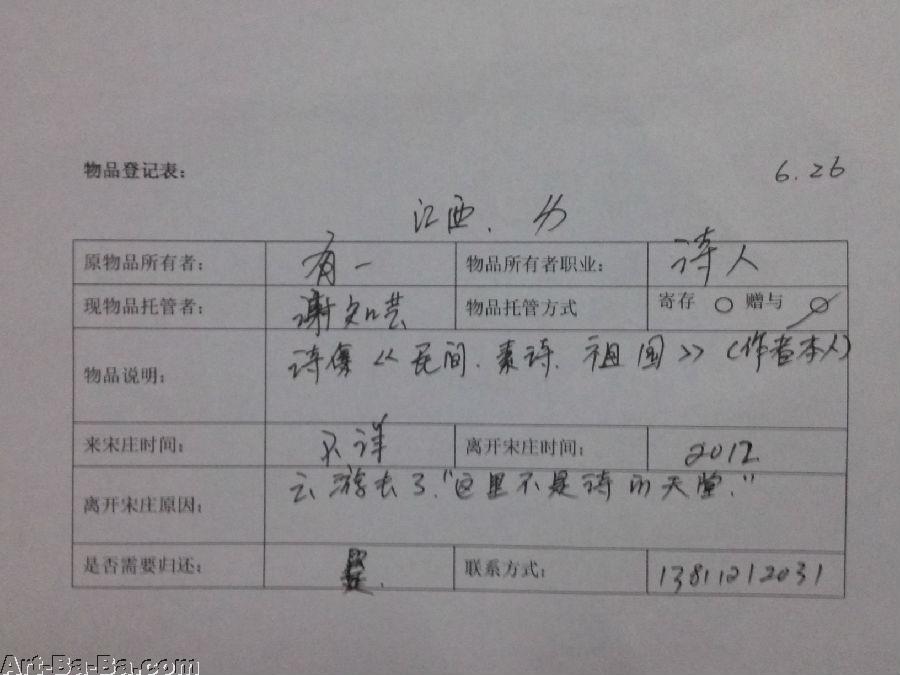 物品登记表：
6.26
江西．
原物品所有者： 有一 物品所有者职业： 诗人
现物品托管者： 谢知芸 物品托管方式 寄存 ○ 赠与 ○
物品说明： 诗集《民间．素诗．祖国》（作者本人）
来宋庄时间： 不详 离开宋庄时间： 2012
离开宋庄原因： 云游去了．"这里不是诗的天堂．"
是否需要归还： 联系方式： 13811212031
Art-Ba-Ba.com